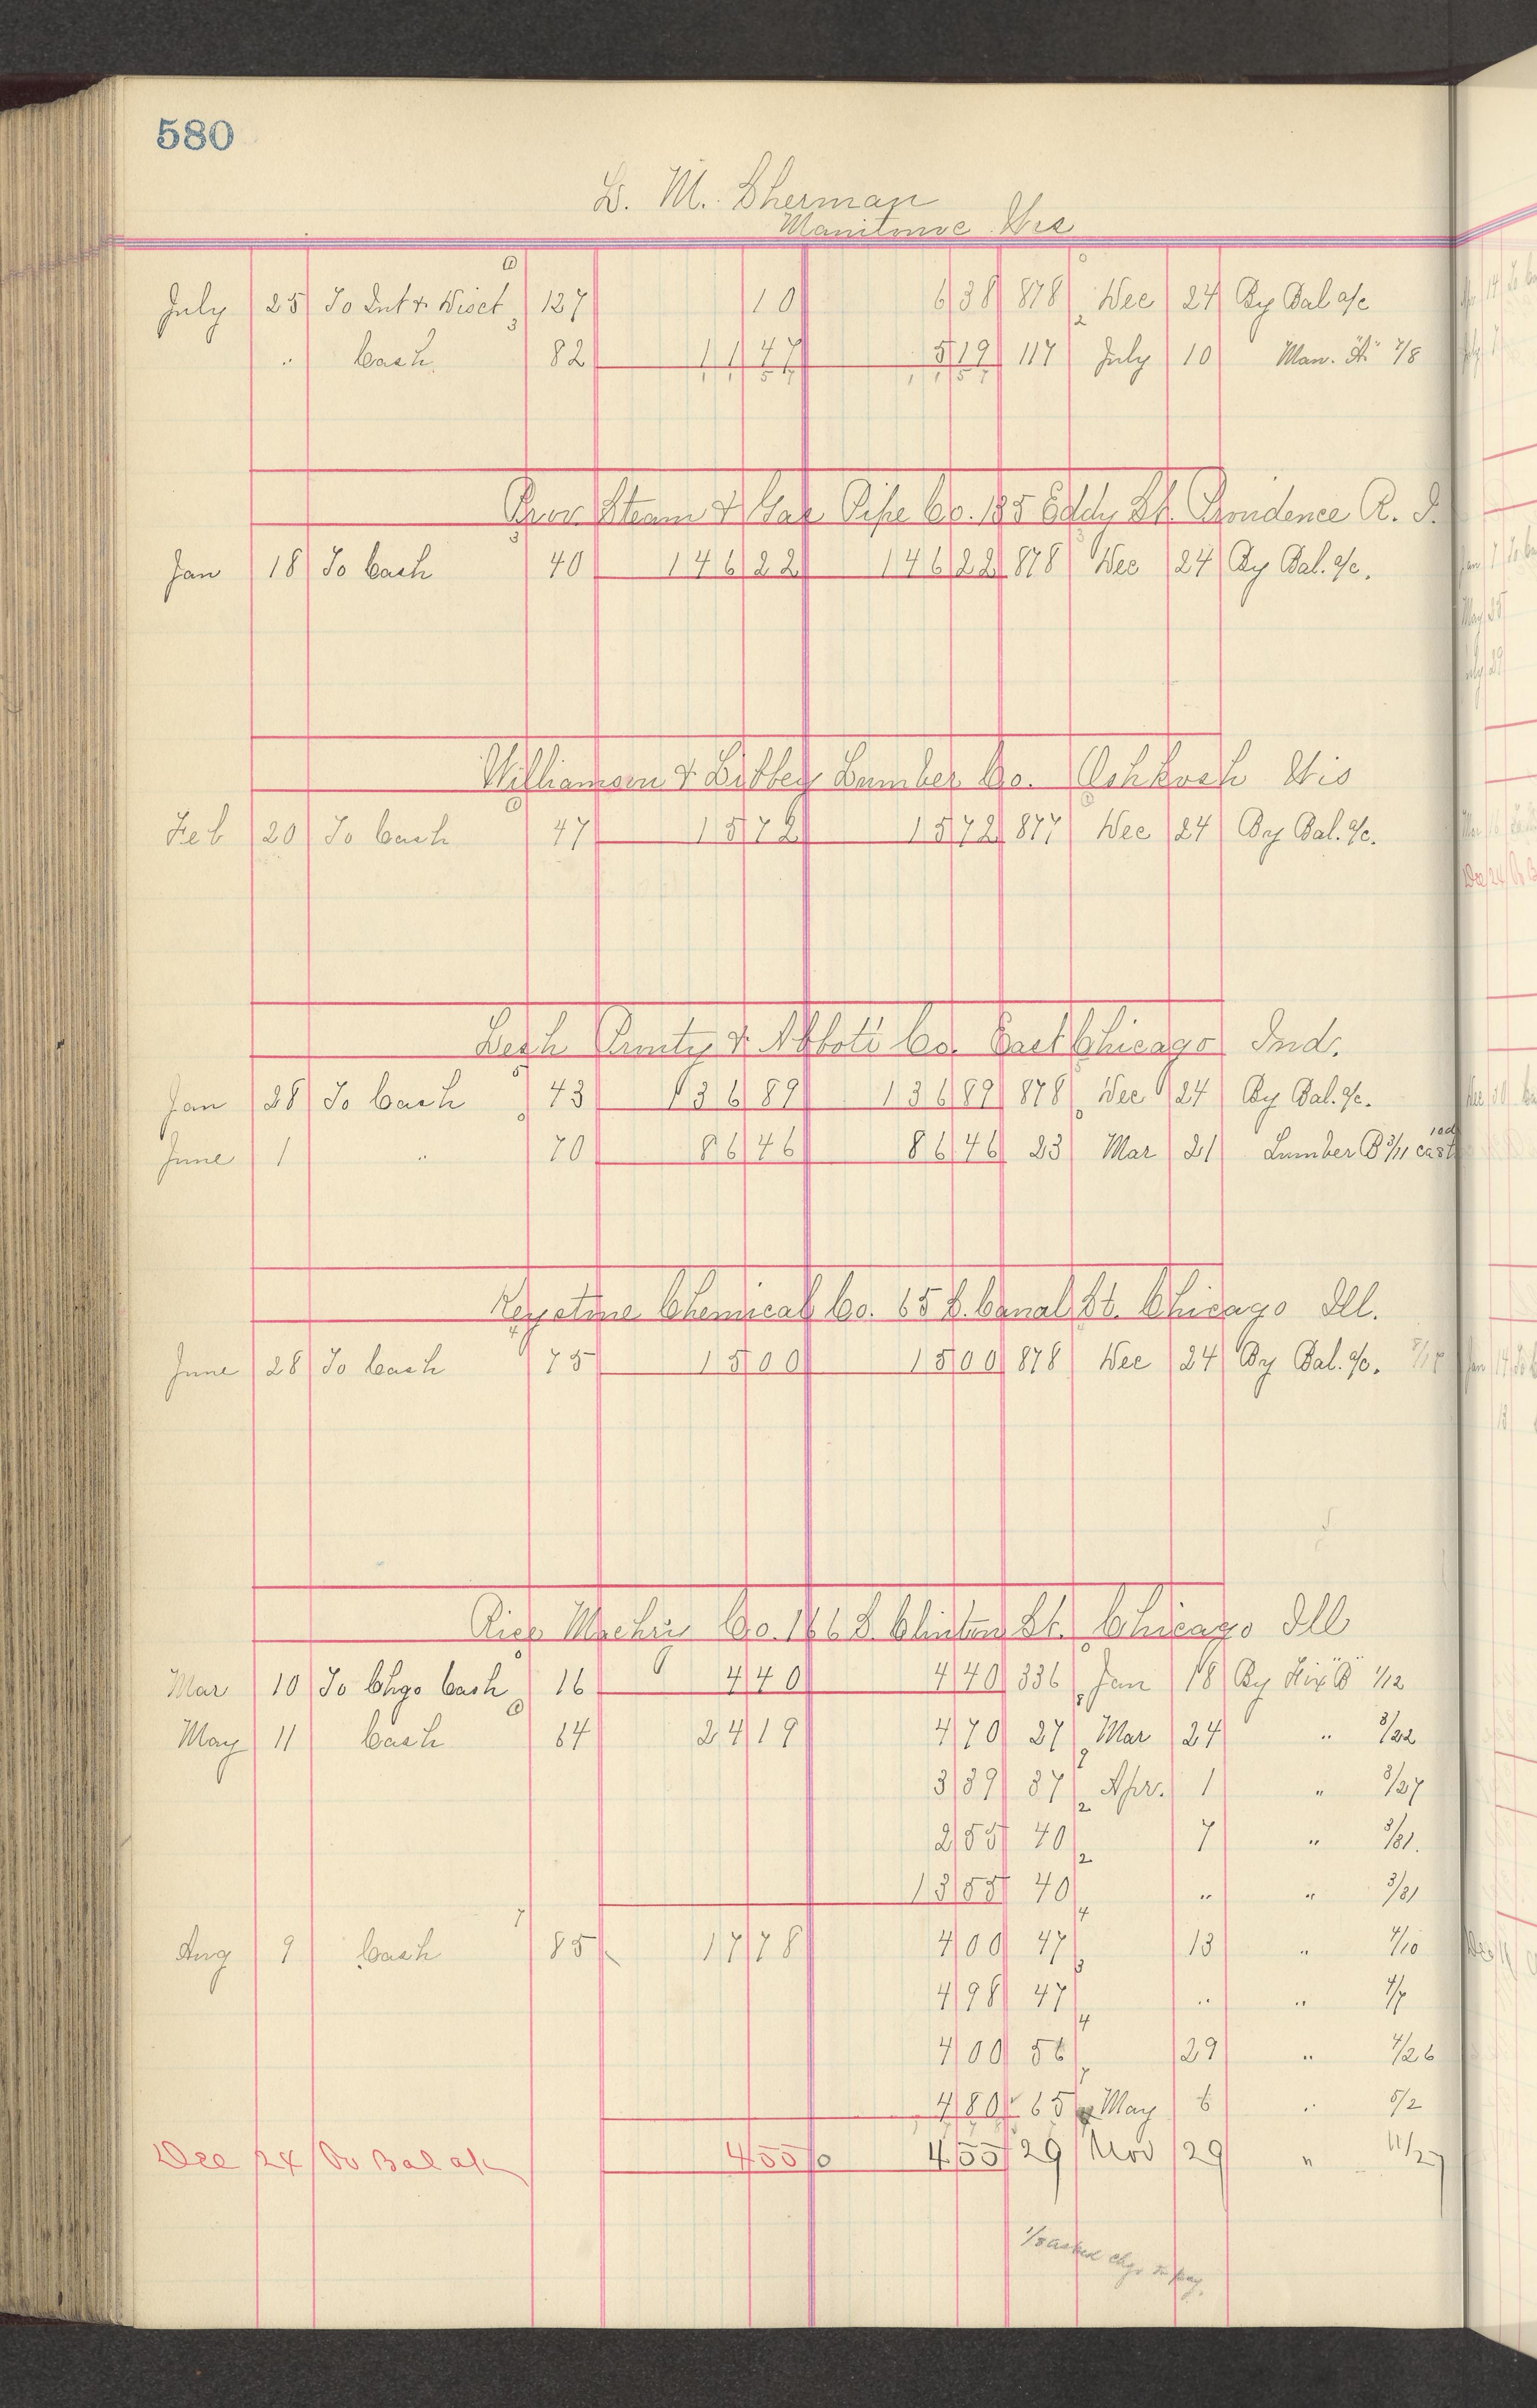 580
L. M. Sherman
Manitowoc Wis
July 25 To Int & Disct 127 10 6 38 878 Dec 24 By Bal a/c
" Cash 82 11 47 5 19 117 July 10 Man. 7/8
Prov. Steam & Gas Pipe Co. 185 Eddy St. Providence R. I.
Jan 18 To Cash 40 146 22 146 22 878 Dec 24 By Bal. a/c.
Williamson & Libbey Lumber Co. Oshkosh Wis
Feb 20 To Cash 47 15 72 15 72 877 Dec 24 By Bal. a/c.
Lesh Prouty & Abbott Co. East Chicago Ind.
Jan 28 To Cash 43 136 89 136 89 878 Dec 24 By Bal. a/c.
June 1 " 70 86 46 86 46 23 Mar 21 Lumber B 3/11
Keystone Chemical Co. 65 S. Canal St. Chicago Ill.
June 28 To Cash 75 15 00 15 00 878 Dec 24 By Bal. a/c.
Rice Co. 166 S. Clinton St. Chicago Ill
Mar 10 To Chgo Cash 16 4 40 4 40 336 Jan 18 By Fix "B" 1/12
May 11 Cash 64 24 19 4 70 27 Mar 24 " 3/22
3 39 37 Apr. 1 " 3/27
2 55 40 7 " 3/31.
13 55 40 " " 3/31
Aug 9 Cash 85 17 78 4 00 47 13 " 4/10
4 98 47 " " 4/7
4 00 56 29 " 4/26
4 80 65 May 6 " 5/2
Dec 24 To Bal a/c 4 55 0 4 55 29 Nov 29 " 11/27
chgo to pay.